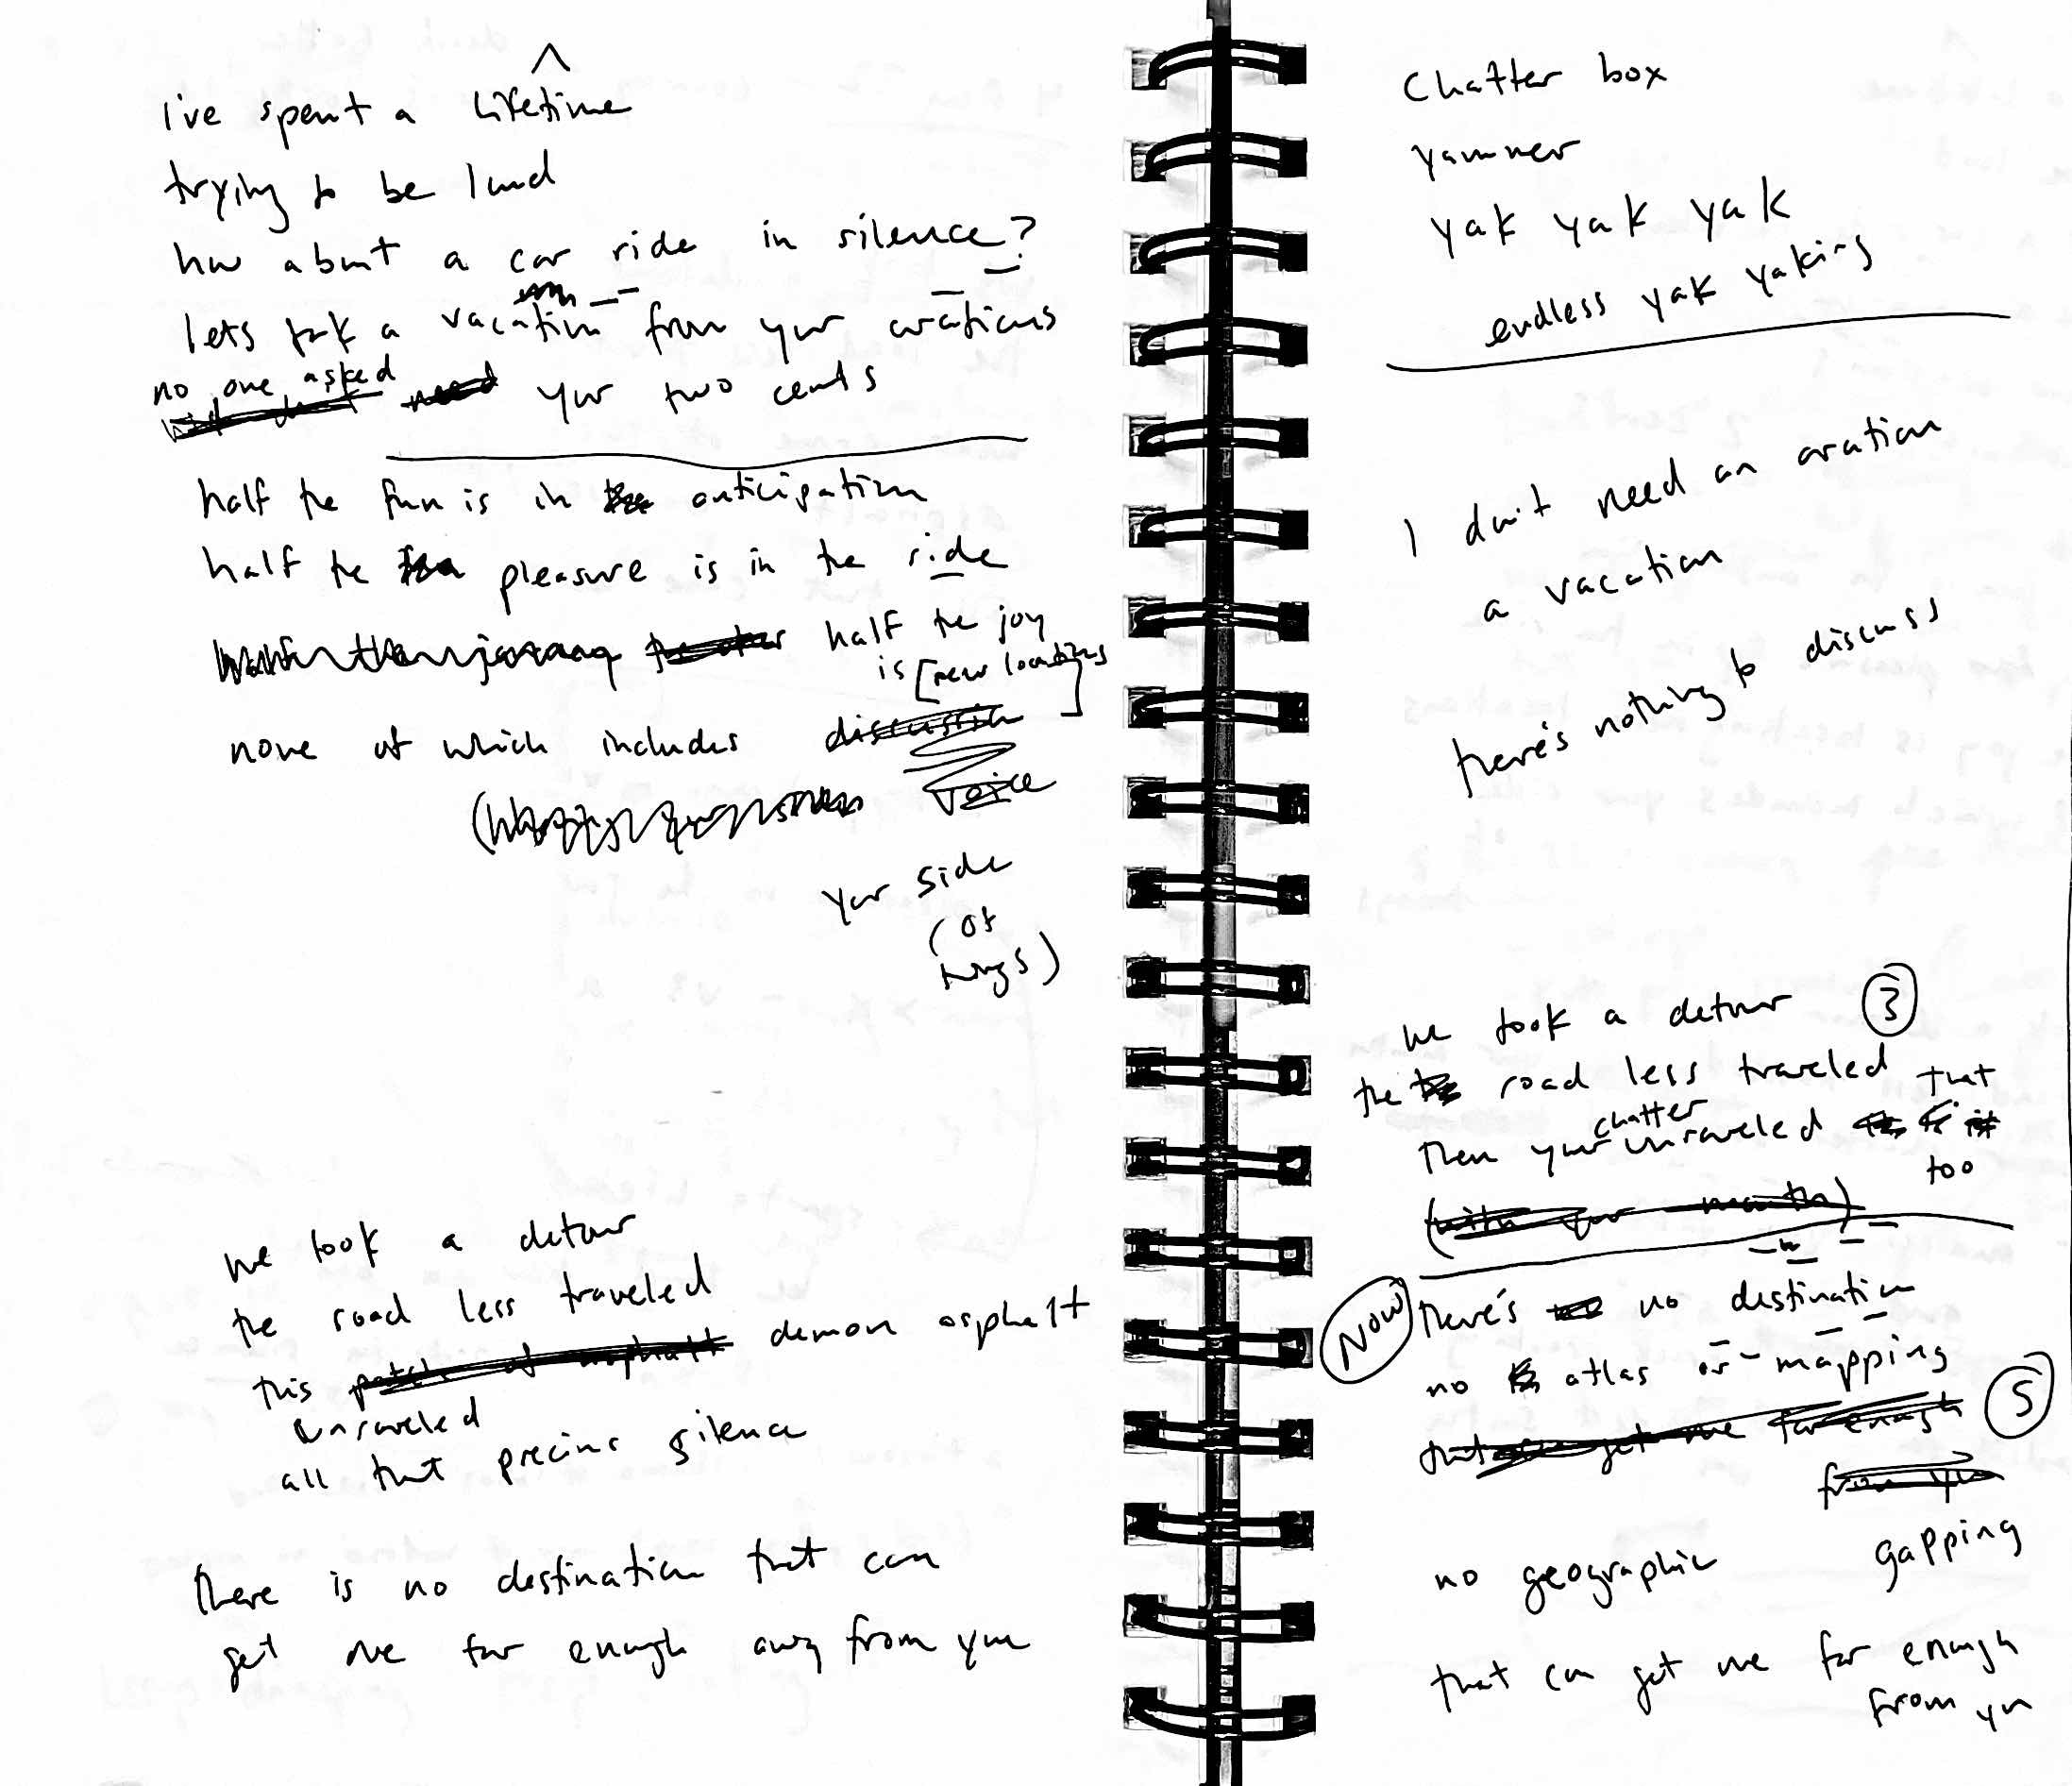 I've spent a lifetime
trying to be loud
how about a car ride in silence?
lets tak a vacation from your orations
no one asked
your two cents
half the fun is in anticipation
half the pleasure is in the ride
half the joy
is [new locations]
none of which includes discussion
voice
your side
(of
things)
we took a detour
the road less traveled
this patch of asphalt demon asphalt
unraveled
all that precious silence
there is no destination that can
get me far enough away from you
Chatter box
yammer
yak yak yak
endless yak yaking
I don't need an oration
a vacation
there's nothing to discuss
we took a detour 3
the road less traveled that
chatter
then your unraveled
too
(with your mouth)
Now there's no destination
no atlas or mapping
5
that can get me far enough
from you
no geographic gapping
that can get me far enough
from you